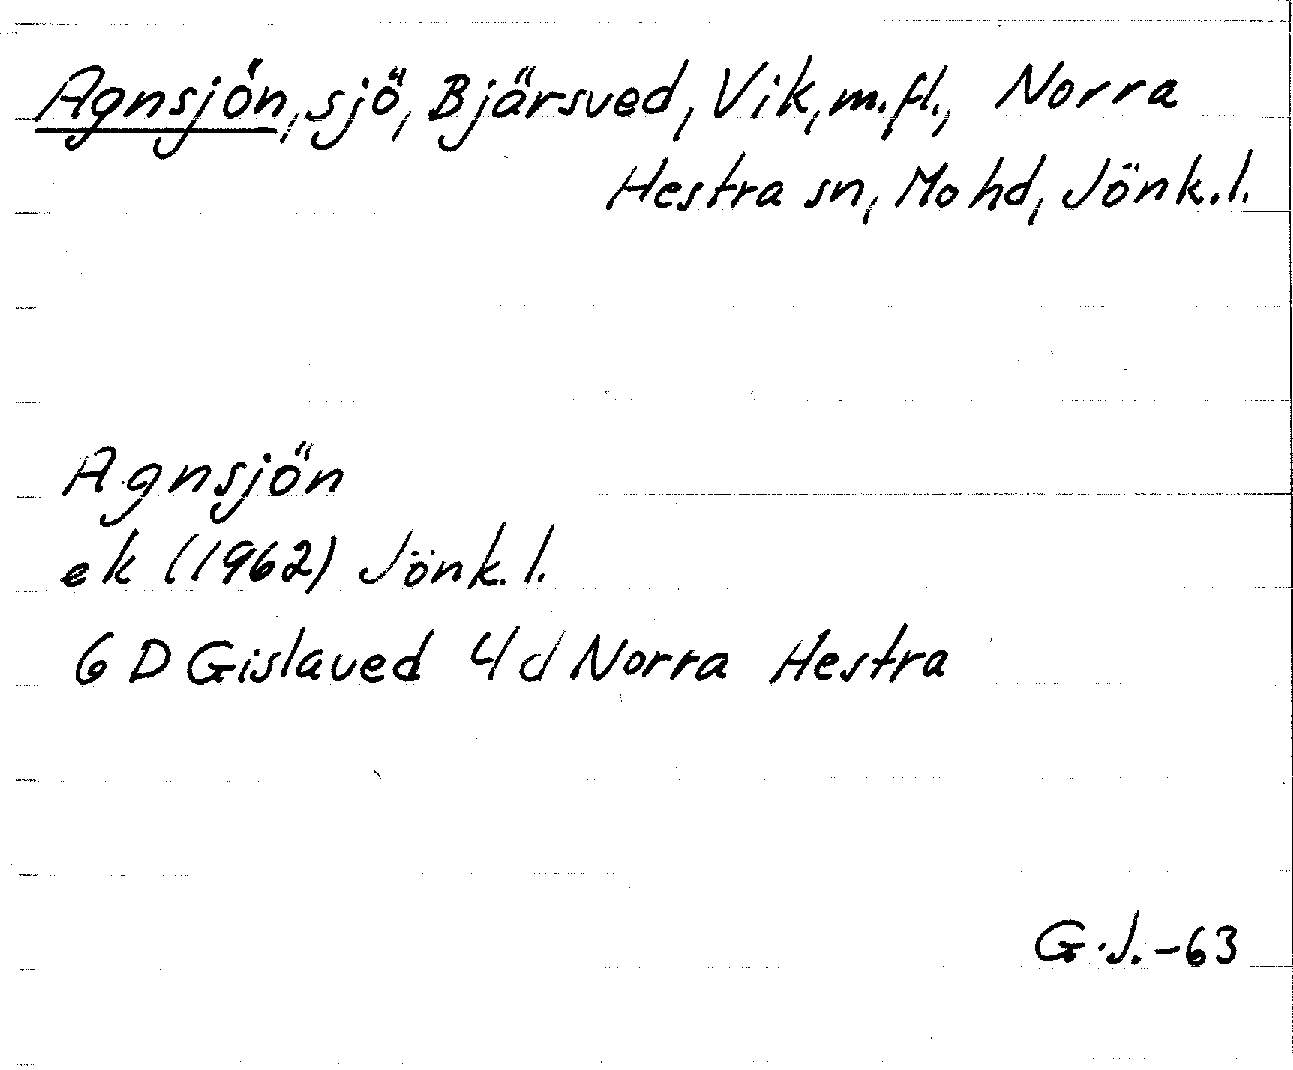 Agnsjön, sjö, Bjärsved, Vik, m.fl., Norra
Hestra sn, Mo hd, Jönk.l.
Agnsjön
ek (1962) Jönk.l.
6 D Gislaved 4d Norra Hestra
G.J.-63